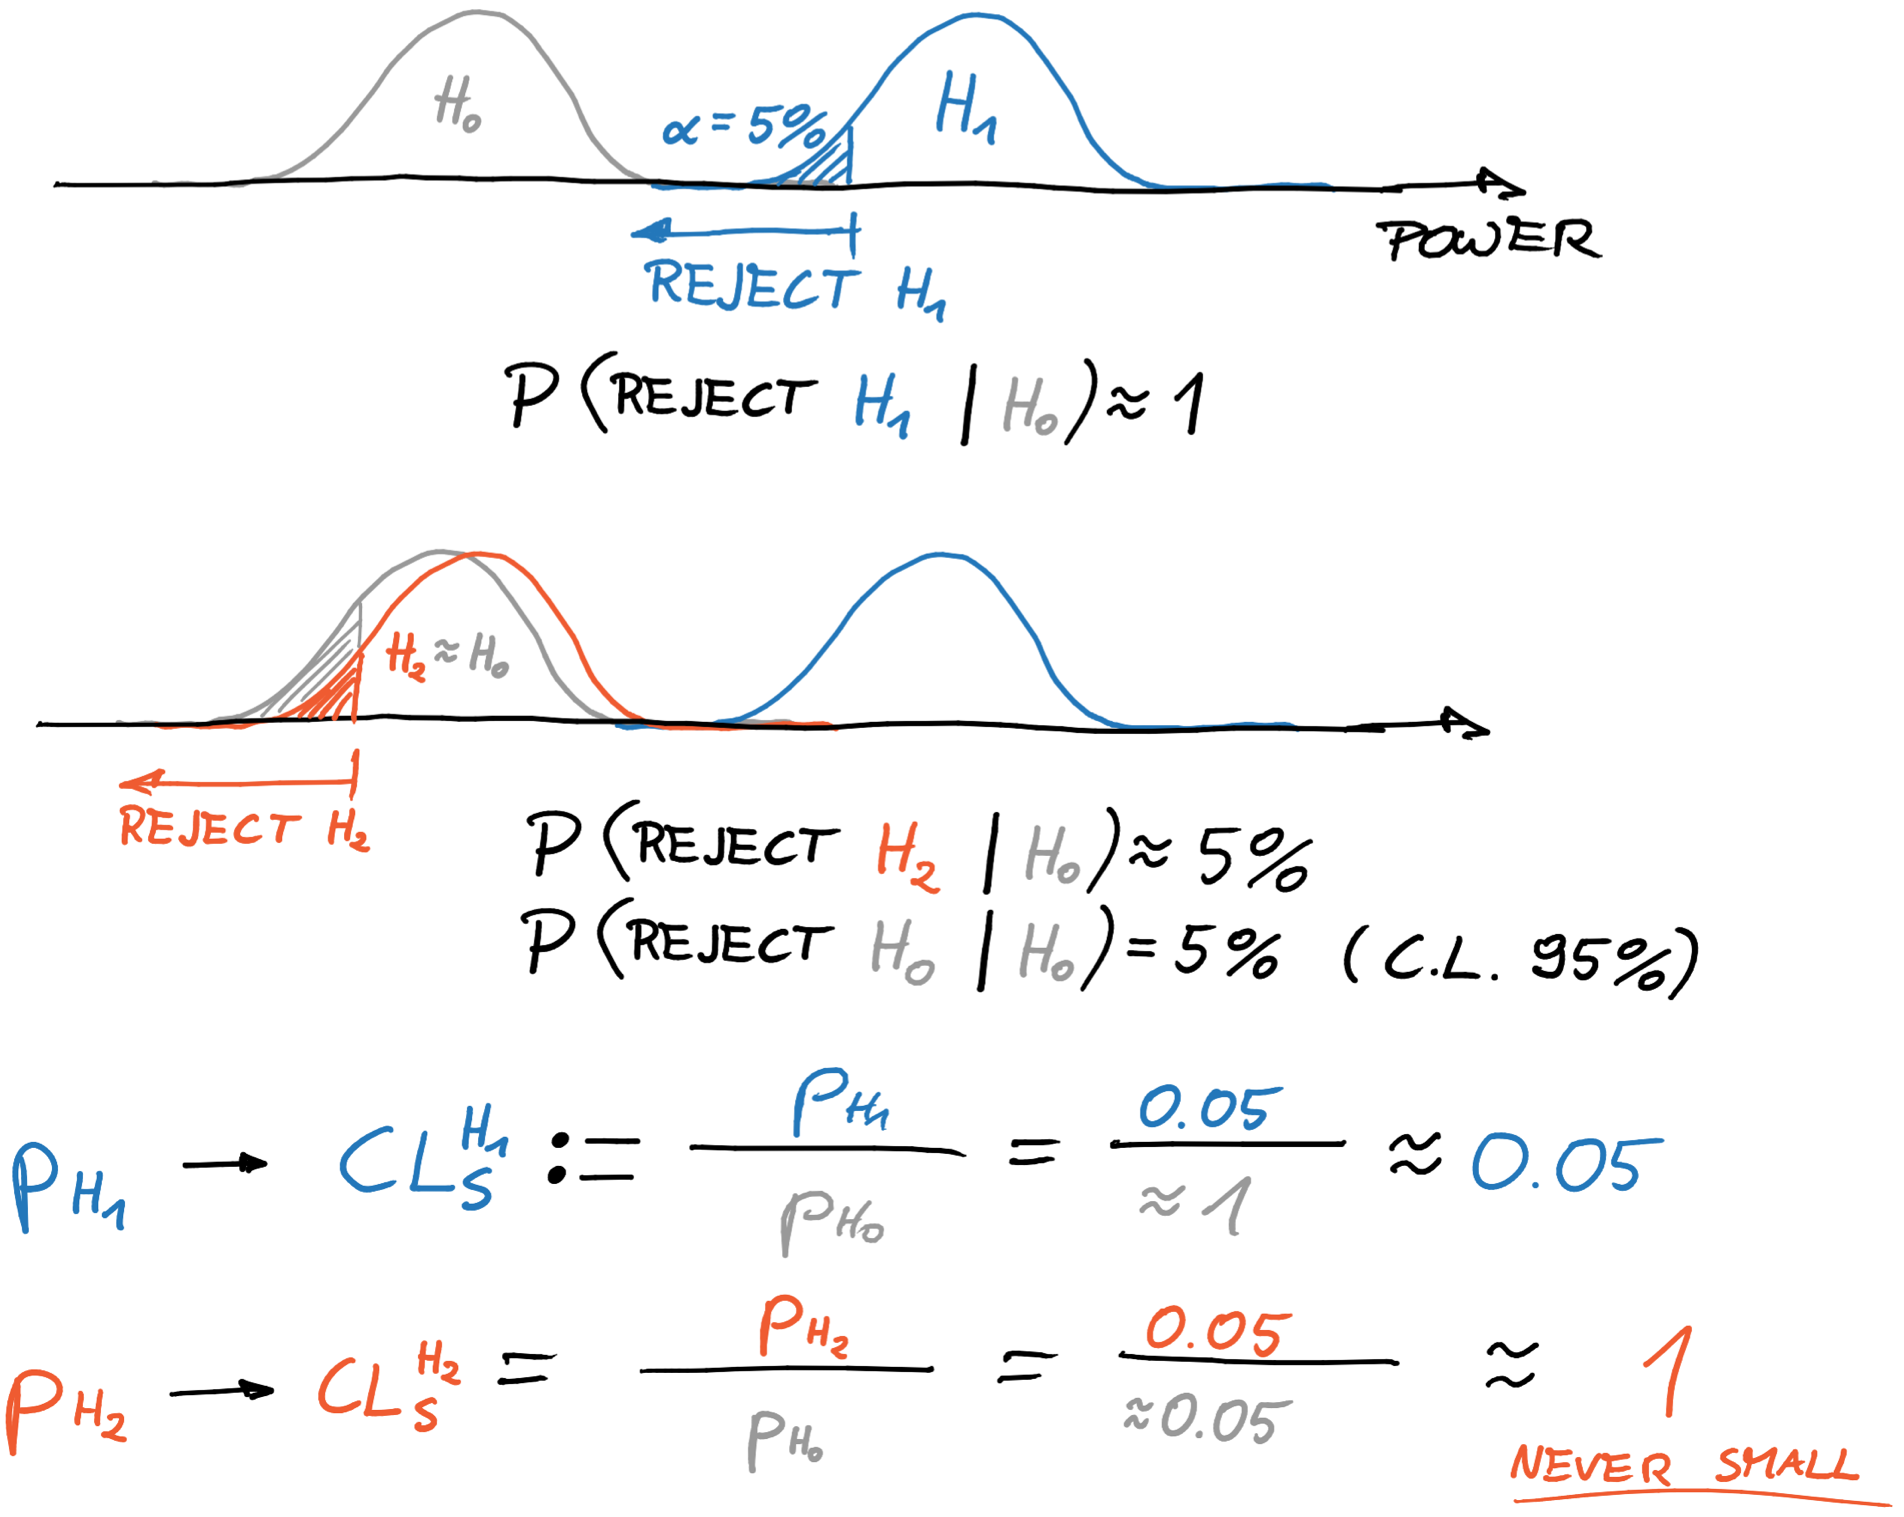 H₀
α = 5%
H₁
POWER
REJECT H₁
P (REJECT H₁ | H₀) ≈ 1
H₂ ≈ H₀
REJECT H₂
P (REJECT H₂ | H₀) ≈ 5%
P (REJECT H₀ | H₀) = 5% (C.L. 95%)
p_H₁ → CL_S^H₁ := p_H₁ / p_H₀ = 0.05 / ≈ 1 ≈ 0.05
p_H₂ → CL_S^H₂ = p_H₂ / p_H₀ = 0.05 / ≈ 0.05 ≈ 1
NEVER SMALL